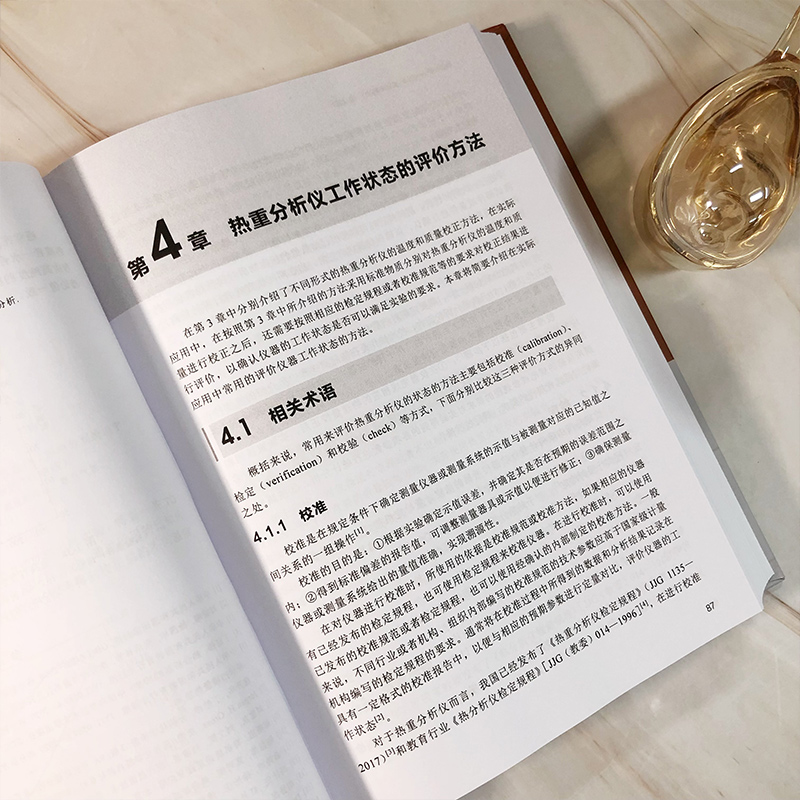 分析.
第4章 热重分析仪工作状态的评价方法
在第 3 章中分别介绍了不同形式的热重分析仪的温度和质量校正方法，在实际
应用中，在按照第 3 章中所介绍的方法采用标准物质分别对热重分析仪的温度和质
量进行校正之后，还需要按照相应的检定规程或者校准规范等的要求对校正结果进
行评价，以确认仪器的工作状态是否可以满足实验的要求。本章将简要介绍在实际
应用中常用的评价仪器工作状态的方法。
4.1 相关术语
概括来说，常用来评价热重分析仪的状态的方法主要包括校准（calibration）、
检定（verification）和校验（check）等方式，下面分别比较这三种评价方式的异同
之处。
4.1.1 校准
校准是在规定条件下确定测量仪器或测量系统的示值与被测量对应的已知值之
间关系的一组操作[1]。
校准的目的是：①根据实验确定示值误差，并确定其是否在预期的误差范围之
内；②得到标准偏差的报告值，可调整测量器具或示值以便进行修正；③确保测量
仪器或测量系统给出的量值准确，实现溯源性。
在对仪器进行校准时，所使用的依据是校准规范或校准方法，如果相应的仪器
有已经发布的检定规程，也可使用检定规程来校准仪器。在进行校准时，可以使用
已发布的校准规范或者检定规程，也可以使用经确认的内部制定的校准方法。一般
来说，不同行业或者机构、组织内部编写的校准规范的技术参数应高于国家级计量
机构编写的检定规程的要求。通常将在校准过程中所得到的数据和分析结果记录在
具有一定格式的校准报告中，以便与相应的预期参数进行定量对比，评价仪器的工
作状态[2]。
对于热重分析仪而言，我国已经发布了《热重分析仪检定规程》（JJG 1135—
2017）[3]和教育行业《热分析仪检定规程》[JJG（教委）014—1996][4]，在进行校准
87